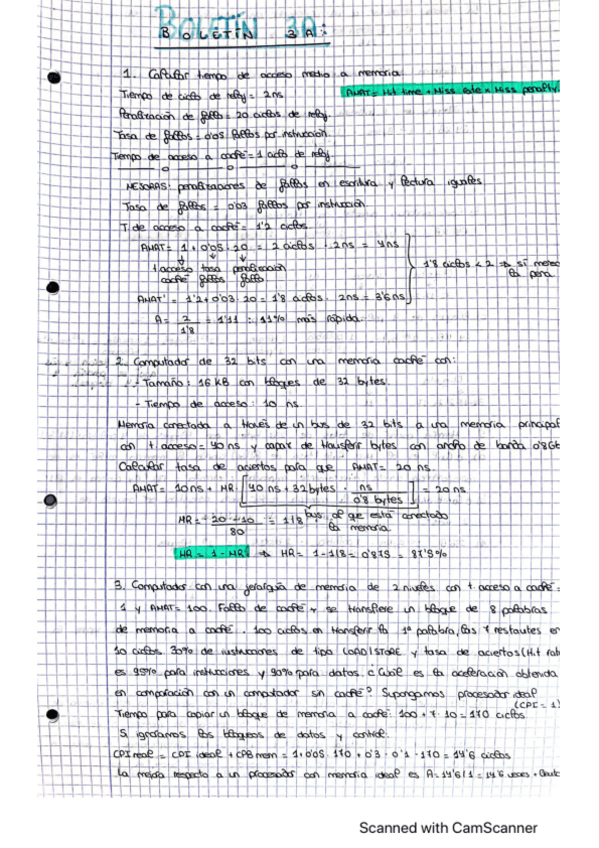 BOLETÍN 3A:
1. Calcular tiempo de acceso medio a memoria
Tiempo de ciclo de reloj = 2ns
AMAT = Hit time + Miss rate x Miss penalty
Penalización de fallo = 20 ciclos de reloj.
Tasa de fallos = 0'05 fallos por instrucción.
Tiempo de acceso a caché = 1 ciclo de reloj
MEJORAS: penalizaciones de fallos en escritura y lectura iguales
Tasa de fallos = 0'03 fallos por instrucción.
T. de acceso a caché = 1'2 ciclos.
AMAT = 1 + 0'05 · 20 = 2 ciclos · 2ns = 4ns
1 acceso tasa penalización
caché fallos fallos
1'8 ciclos < 2 → sí merece
la pena
AMAT' = 1'2 + 0'03 · 20 = 1'8 ciclos · 2ns = 3'6ns
A = 2/1'8 = 1'11 : 11% más rápida.
2. Computador de 32 bits con una memoria caché con:
- Tamaño: 16 kB con bloques de 32 bytes.
- Tiempo de acceso: 10 ns.
Memoria conectada a través de un bus de 32 bits a una memoria principal
con t acceso = 40 ns y capaz de transferir bytes con ancho de banda 0'8 Gb
Calcular tasa de aciertos para que AMAT = 20 ns.
AMAT = 10ns + MR · [40 ns + 32 bytes · ns/0'8 bytes] = 20ns
bus al que está conectado
la memoria.
MR = 20 - 10/80 = 1/8
HR = 1 - MR → HR = 1 - 1/8 = 0'875 = 87'5%
3. Computador con una jerarquía de memoria de 2 niveles con t. acceso a caché =
1 y AMAT = 100. Fallo de caché → se transfiere un bloque de 8 palabras
de memoria a caché. 100 ciclos en transferir la 1º palabra, las 7 restantes en
10 ciclos. 30% de instrucciones de tipo LOAD/STORE y tasa de aciertos (Hit rate
es 95% para instrucciones y 90% para datos. ¿Cuál es la aceleración obtenida
en comparación con un computador sin caché? Supongamos procesador ideal
(CPI = 1)
Tiempo para copiar un bloque de memoria a caché: 100 + 7 · 10 = 170 ciclos
Si ignoramos los bloqueos de datos y control:
CPI real = CPI ideal + CPB mem = 1 + 0'05 · 170 + 0'3 · 0'1 · 170 = 14'6 ciclos
La mejora respecto a un procesador con memoria ideal es A = 14'6/1 = 14'6 veces + lenta
Scanned with CamScanner